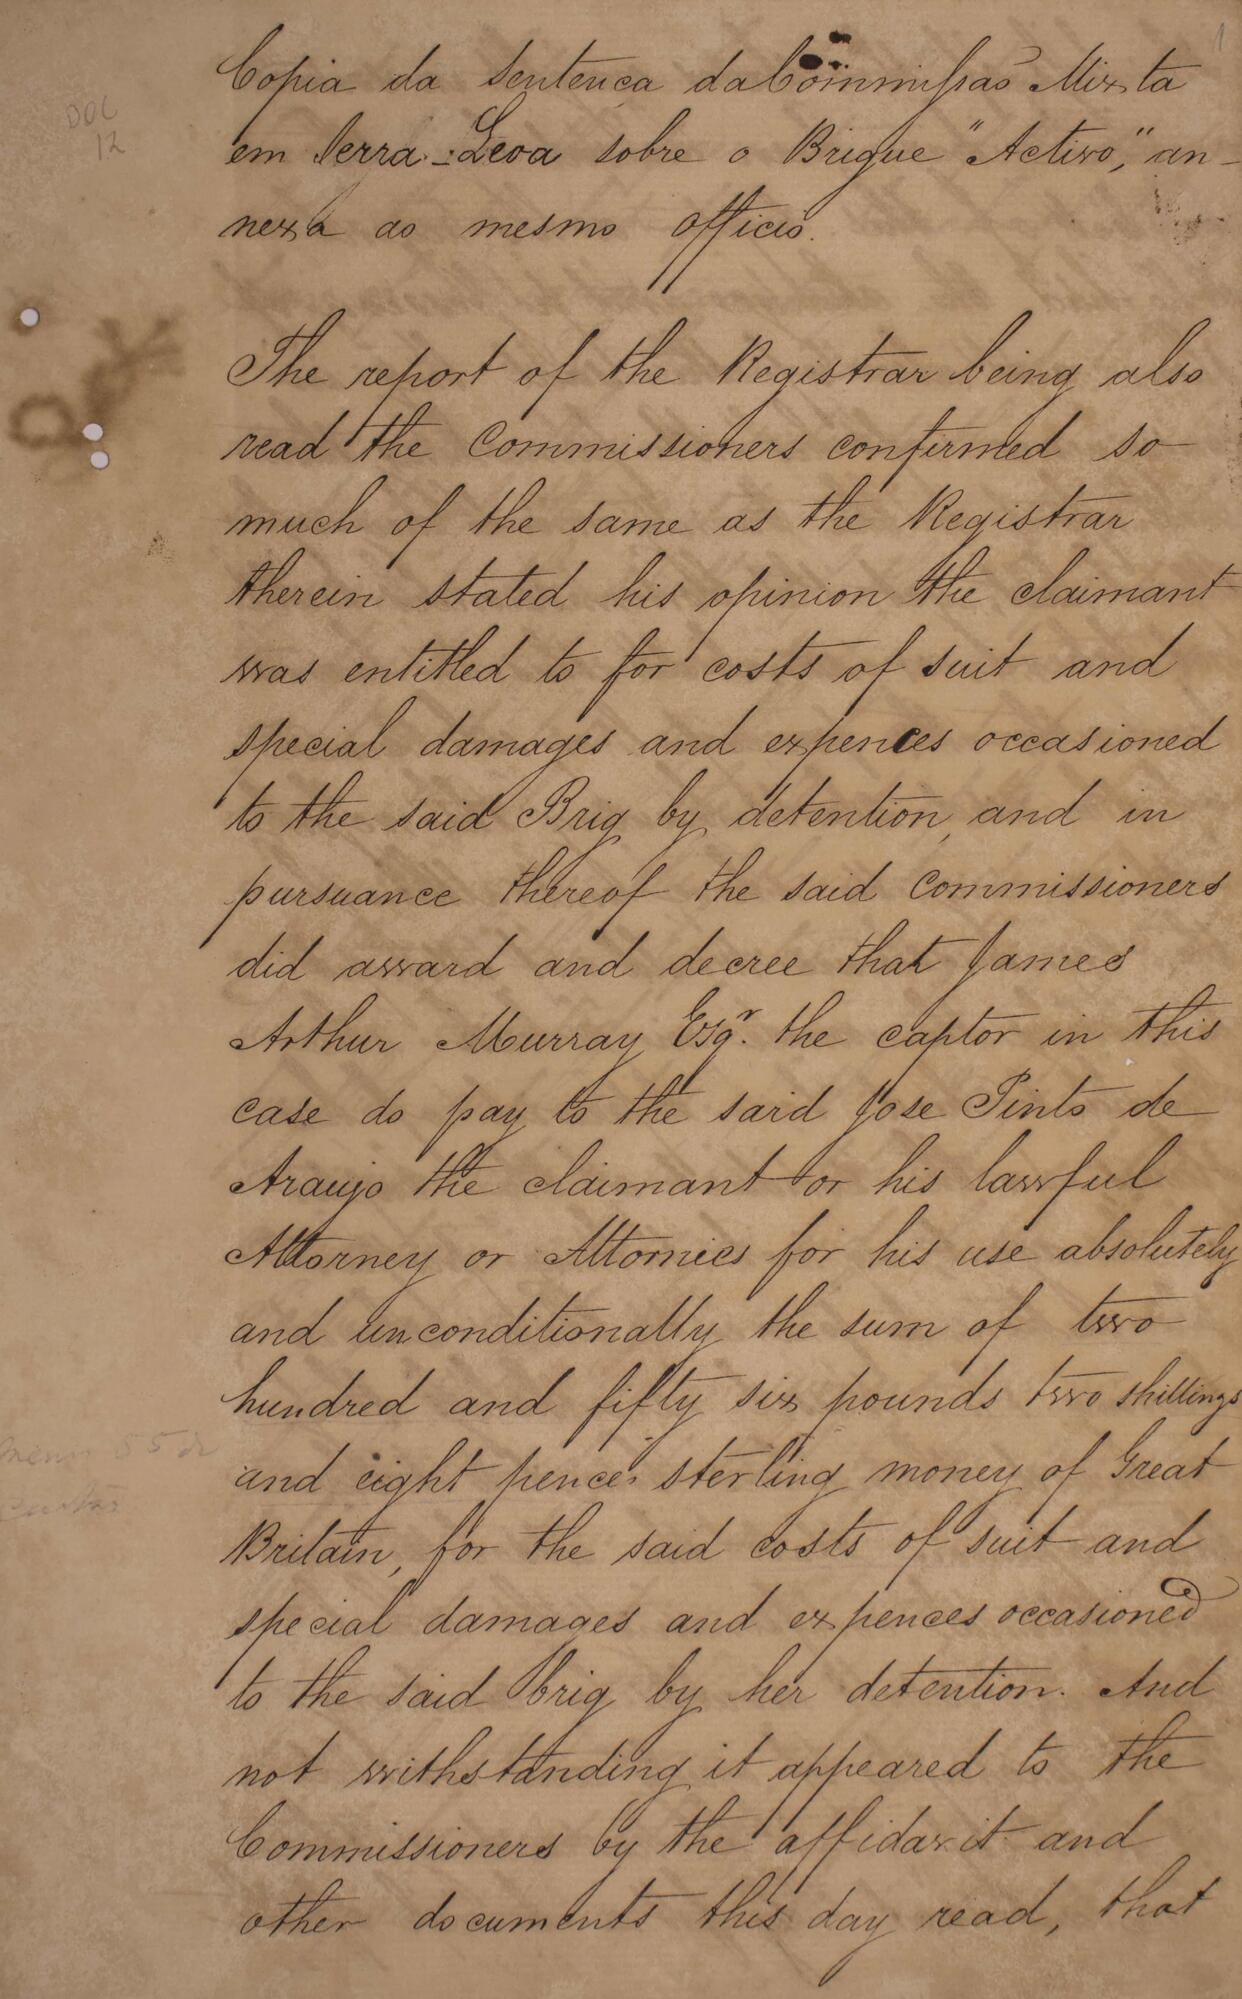 1
DOC
12
Copia da Sentença da Commissaõ Mixta
em Serra-Leoa sobre o Brigue "Activo", an-
nexa ao mesmo officio.
The report of the Registrar being also
read the Commissioners confirmed so
much of the same as the Registrar
therein stated his opinion the claimant
was entitled to for costs of suit and
special damages and expences occasioned
to the said Brig by detention, and in
pursuance thereof the said Commissioners
did award and decree that James
Arthur Murray Esqr. the captor in this
case do pay to the said Jose Pinto de
Araujo the claimant or his lawful
Attorney or Attornies for his use absolutely
and unconditionally the sum of two
hundred and fifty six pounds two shillings
and eight pence sterling money of Great
Britain, for the said costs of suit and
special damages and expences occasioned
to the said brig by her detention. And
not withstanding it appeared to the
Commissioners by the affidavit and
other documents this day read, that